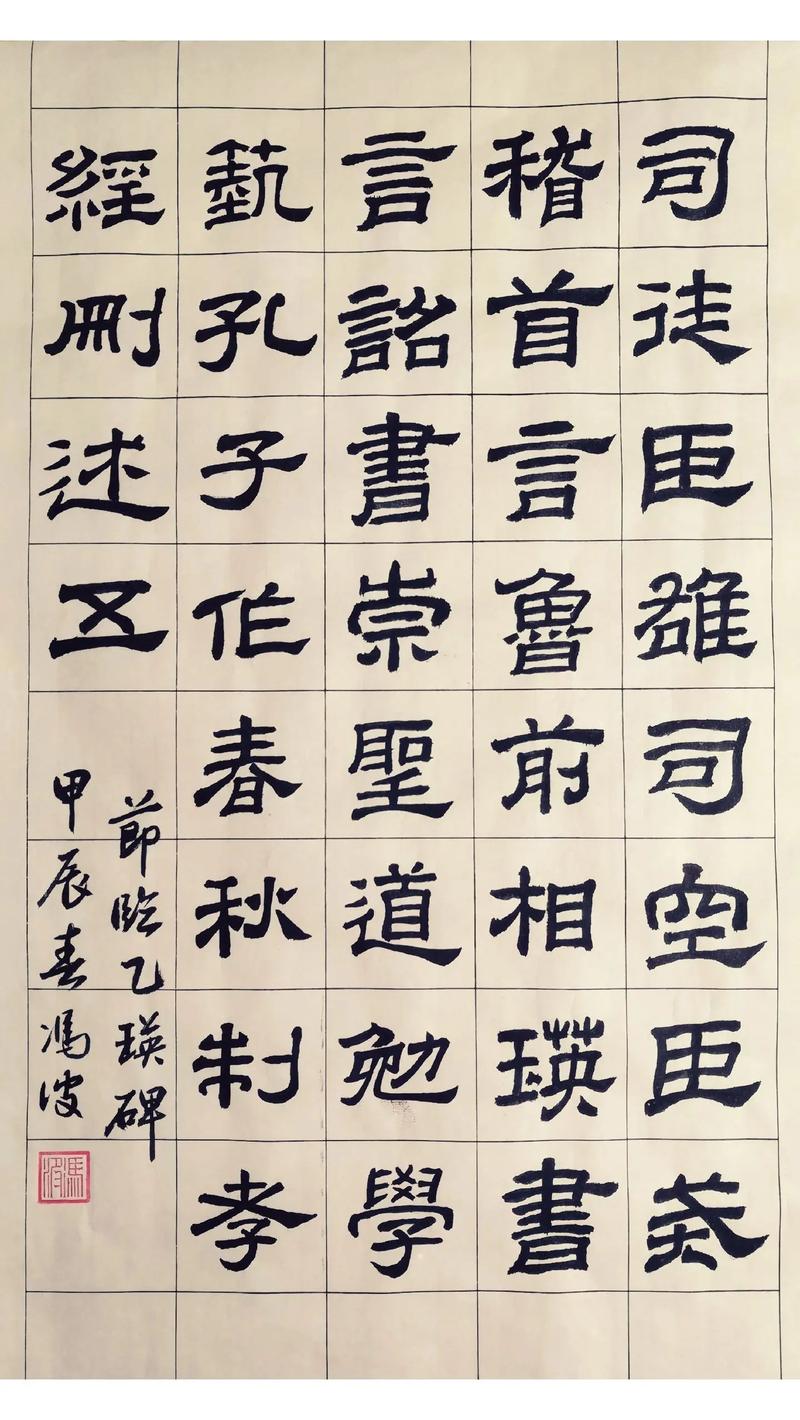 司徒臣雄司空臣戒
稽首言魯前相瑛書
言詔書崇聖道勉學
蓺孔子作春秋制孝
經刪述五
節臨乙瑛碑
甲辰春馮波
馮波